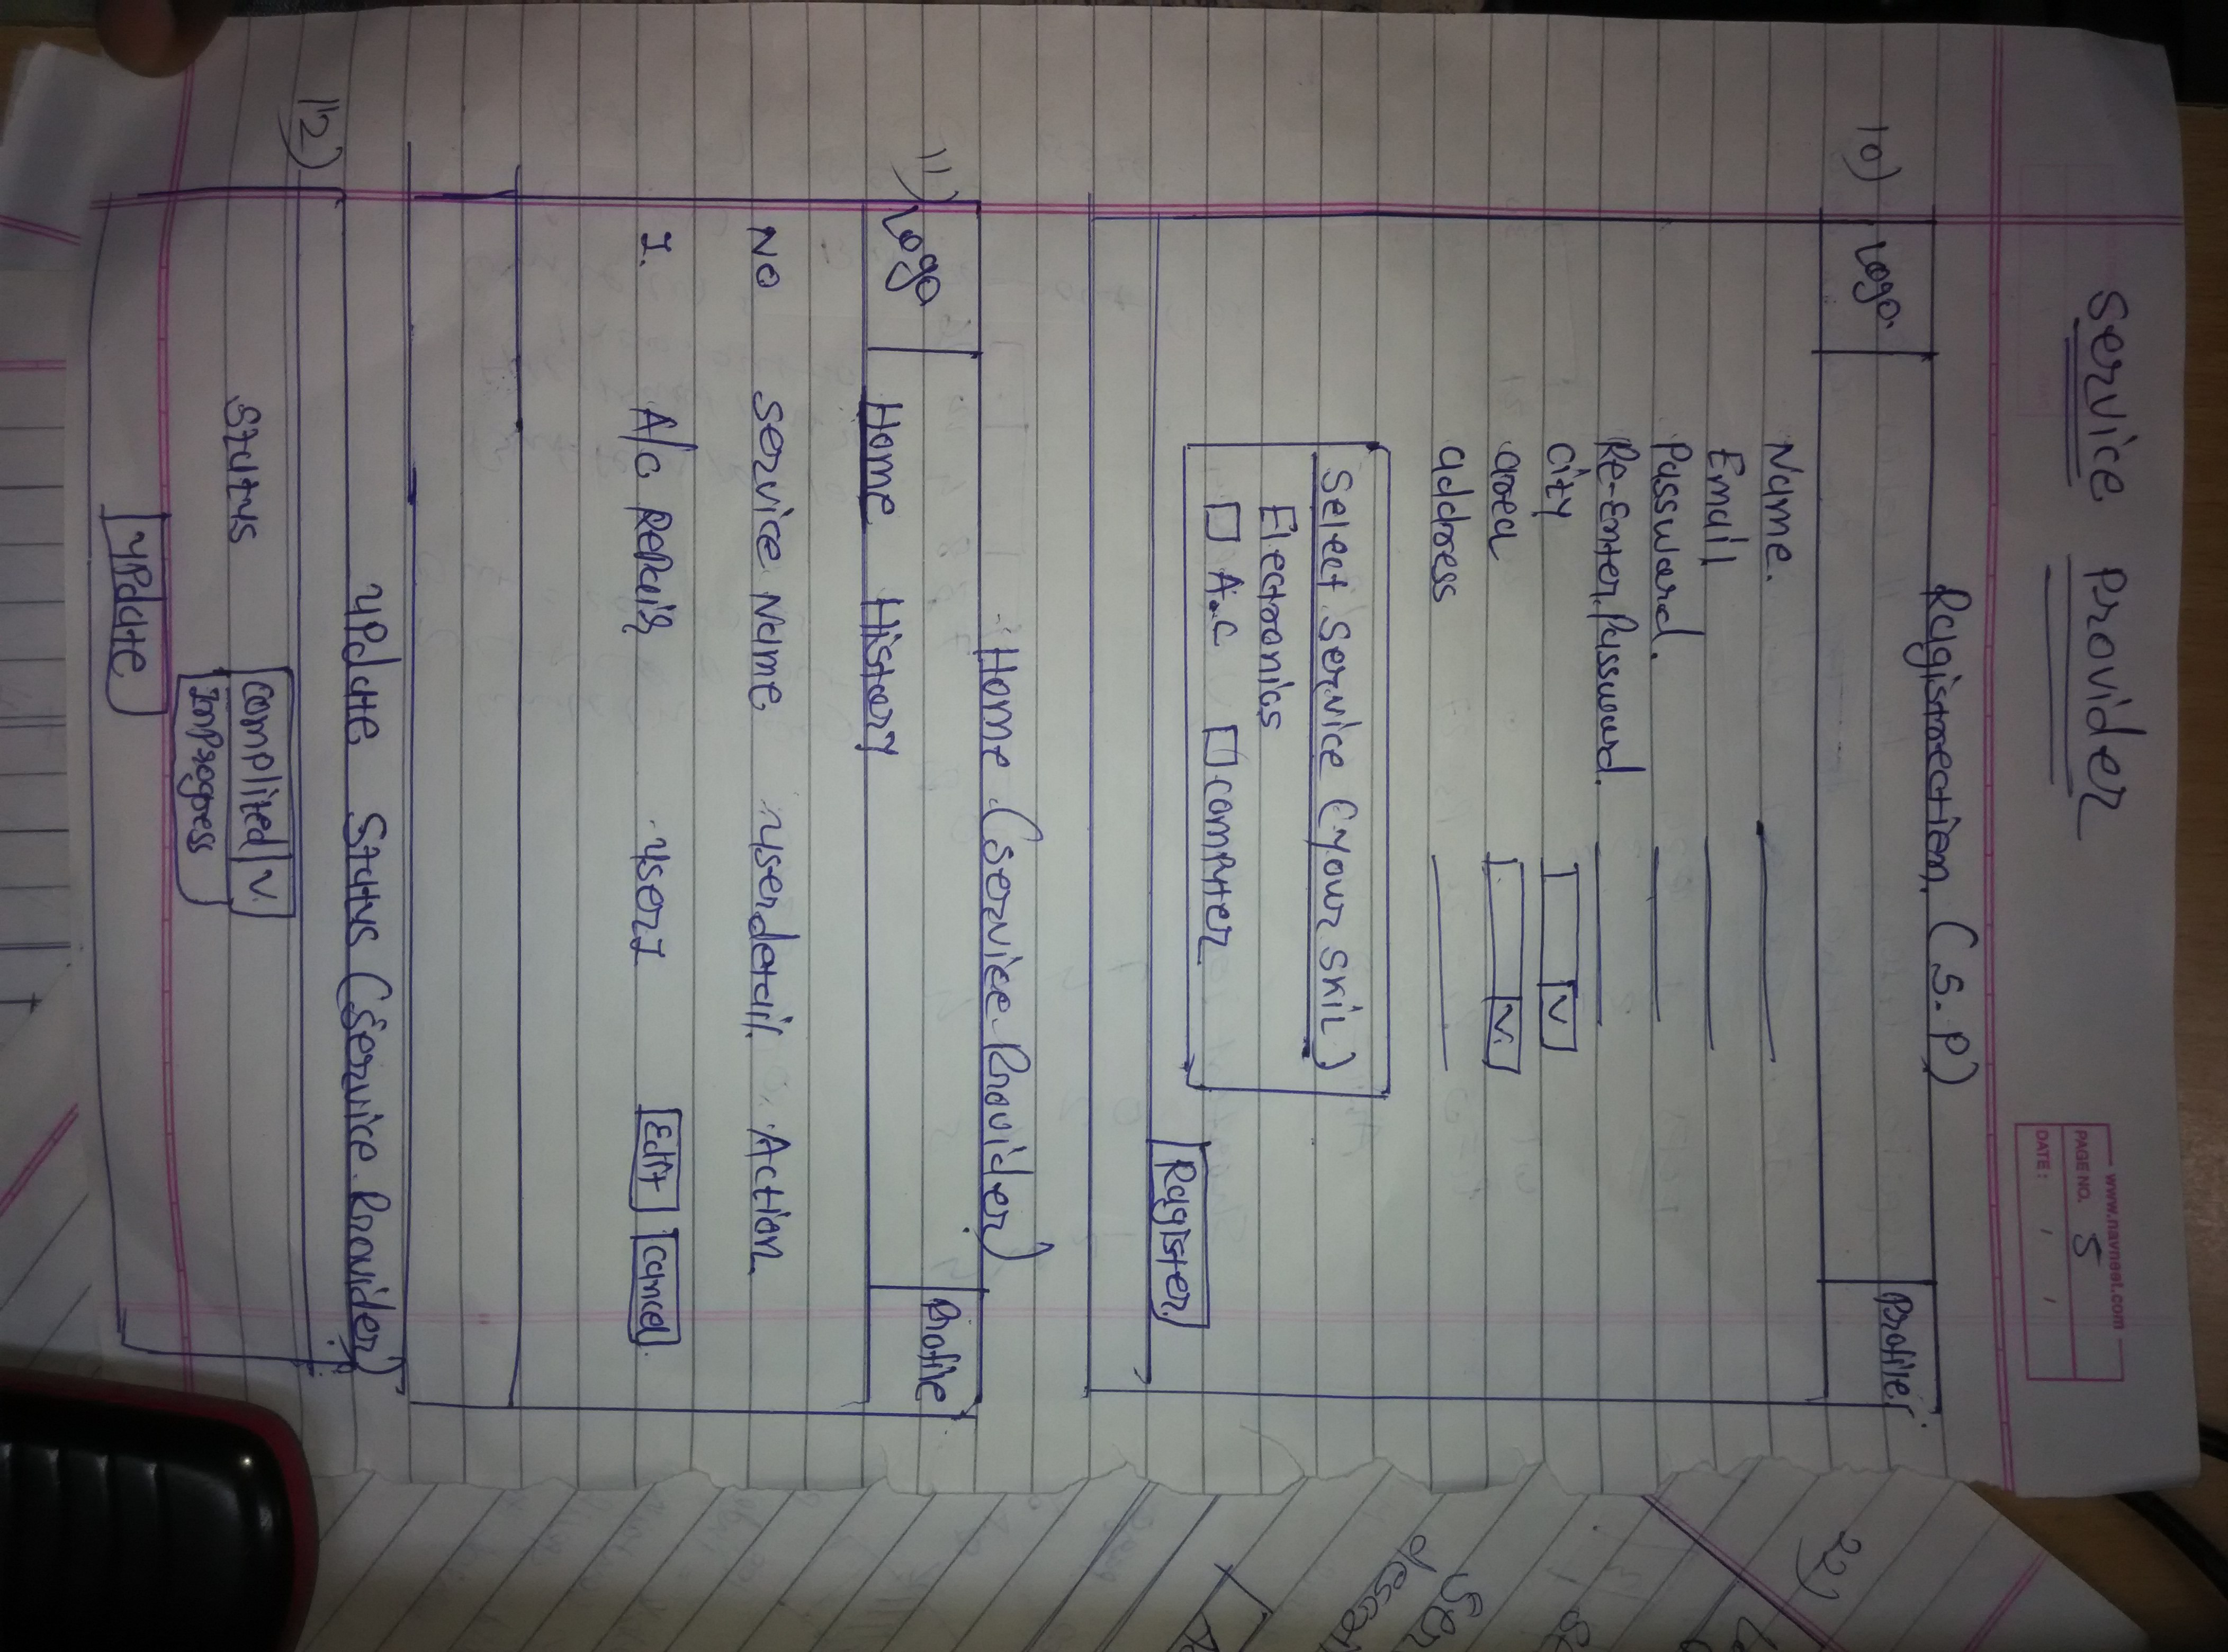 service provider
www.navneet.com
PAGE NO. 5
DATE : / /
Ragistraection (S.P)
10) Logo. Profile
Name.
Email
Password.
Re-Enter Password.
City V
area V.
address
Select Service (your skil)
Electronics
A.C computer
Ragister
Home (Service Provider)
11) Logo Profile
Home History
NO Service Name userdetail. Action.
1. A/C Repair user1 Edit Cancel
Update Status (Service Provider)
12)
Status Complited V.
InProgress
UPdate
22)